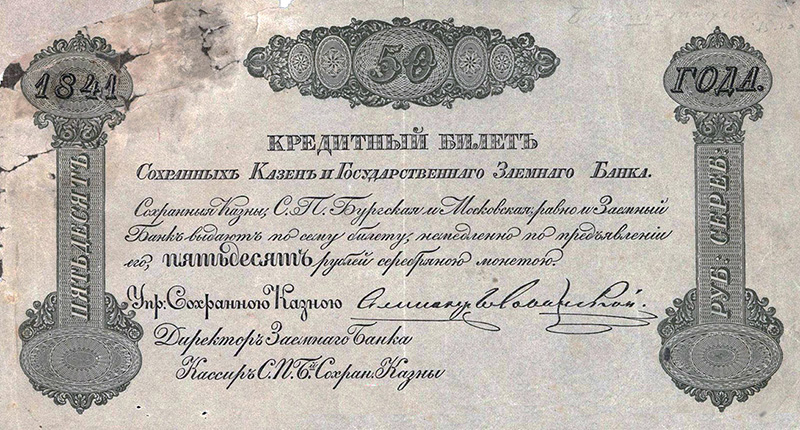 50
1841 ГОДА.
КРЕДИТНЫЙ БИЛЕТЪ
Сохранныхъ Казенъ и Государственнаго Заемнаго Банка.
Сохранныя Казны, С.П.Бургская и Московская, равно и Заемный
Банкъ выдаютъ по сему билету, немедленно по предъявленіи
его, пятьдесятъ рублей серебряною монетою.
Упр: Сохранною Казною
Директоръ Заемнаго Банка
Кассиръ С.П.Б.й Сохран. Казны
ПЯТЬДЕСЯТЪ
РУБ: СЕРЕБ: